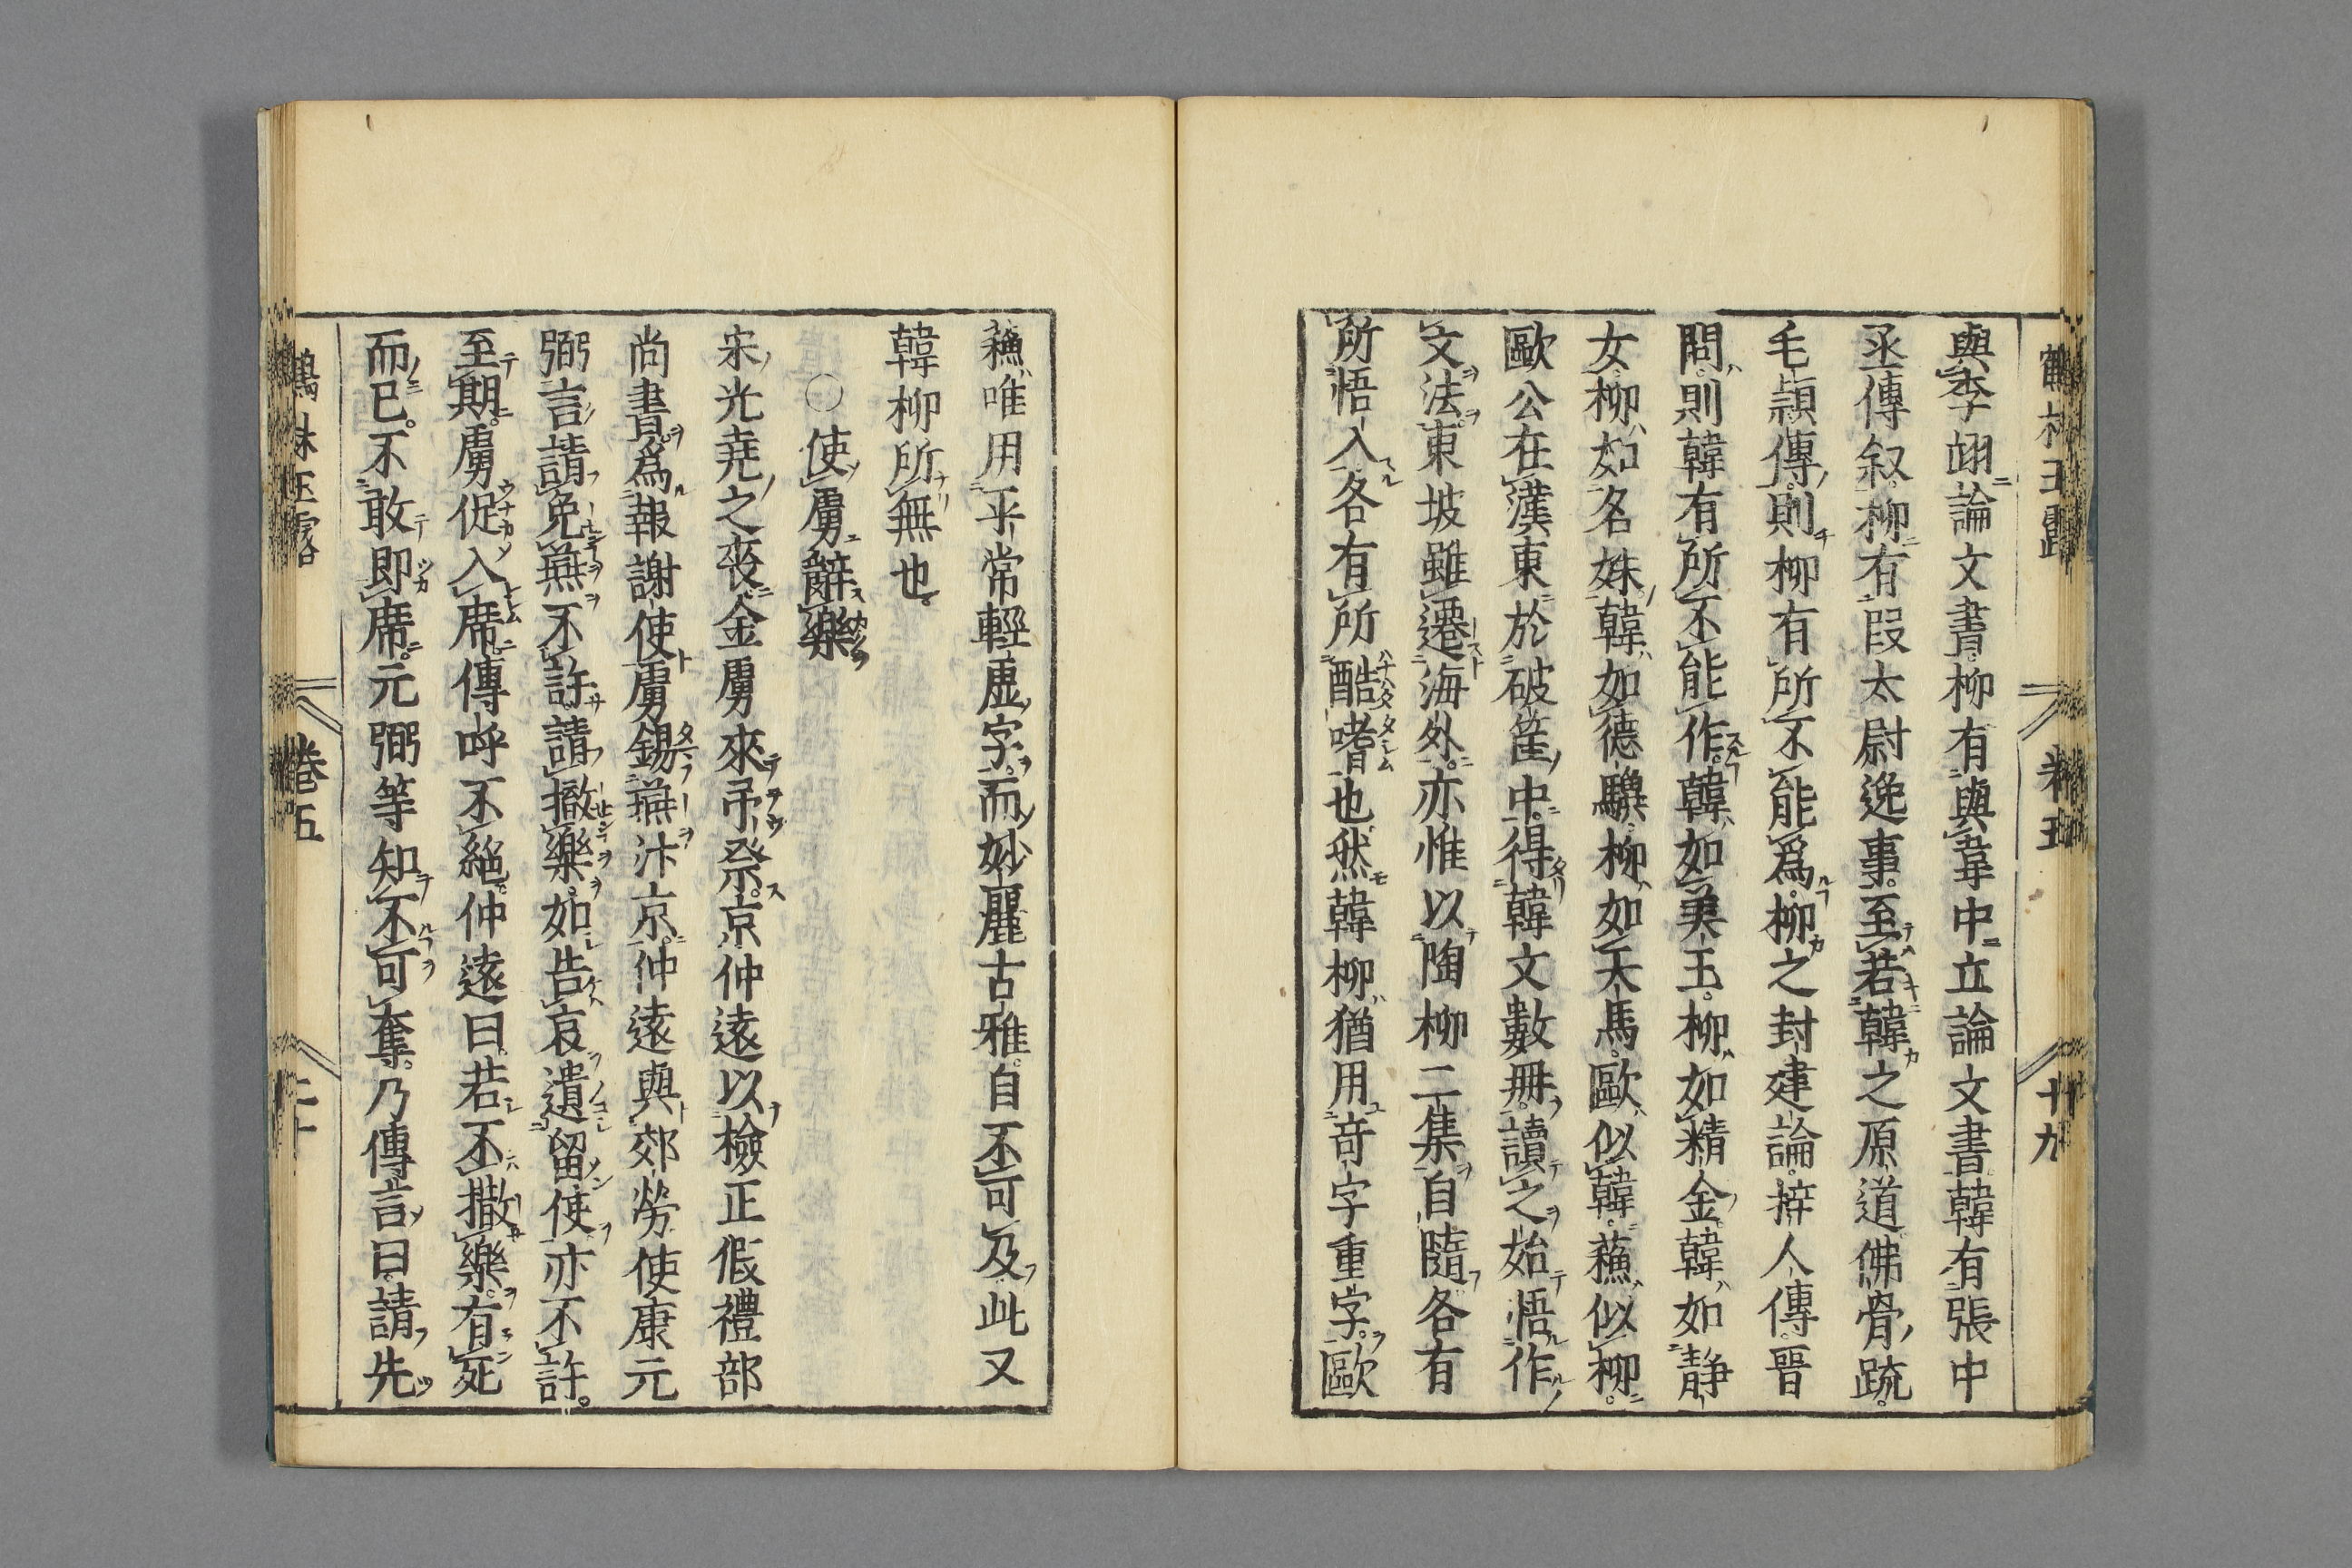 鶴林玉露 卷五 十九
與李翊論文書柳有與韋中立論文書韓有張中
丞傳叙柳有段太尉逸事至若韓之原道佛骨䟽
毛頴傳則柳有所不能爲柳之封建論梓人傳晋
問則韓有所不能作韓如美玉柳如精金韓如静
女柳如名姝韓如德驥柳如天馬歐似韓蘓似柳
歐公在漢東於破筐中得韓文數冊讀之始悟作
文法東坡雖遷海外亦惟以陶柳二集自隨各有
所悟入各有所酷嗜也然韓柳猶用竒字重字歐
蘓唯用平常輕虛字而妙麗古雅自不可及此又
韓柳所無也
○使虜辭樂
宋光堯之喪金虜來吊祭京仲遠以檢正假禮部
尚書爲報謝使虜錫䜩汴京仲遠與郊勞使康元
弼言請免䜩不許請撤樂如告哀遺留使亦不許
至期虜促入席傳呼不絕仲遠曰若不撤樂有死
而已不敢即席元弼等知不可奪乃傳言曰請先
鶴林玉露 卷五 二十